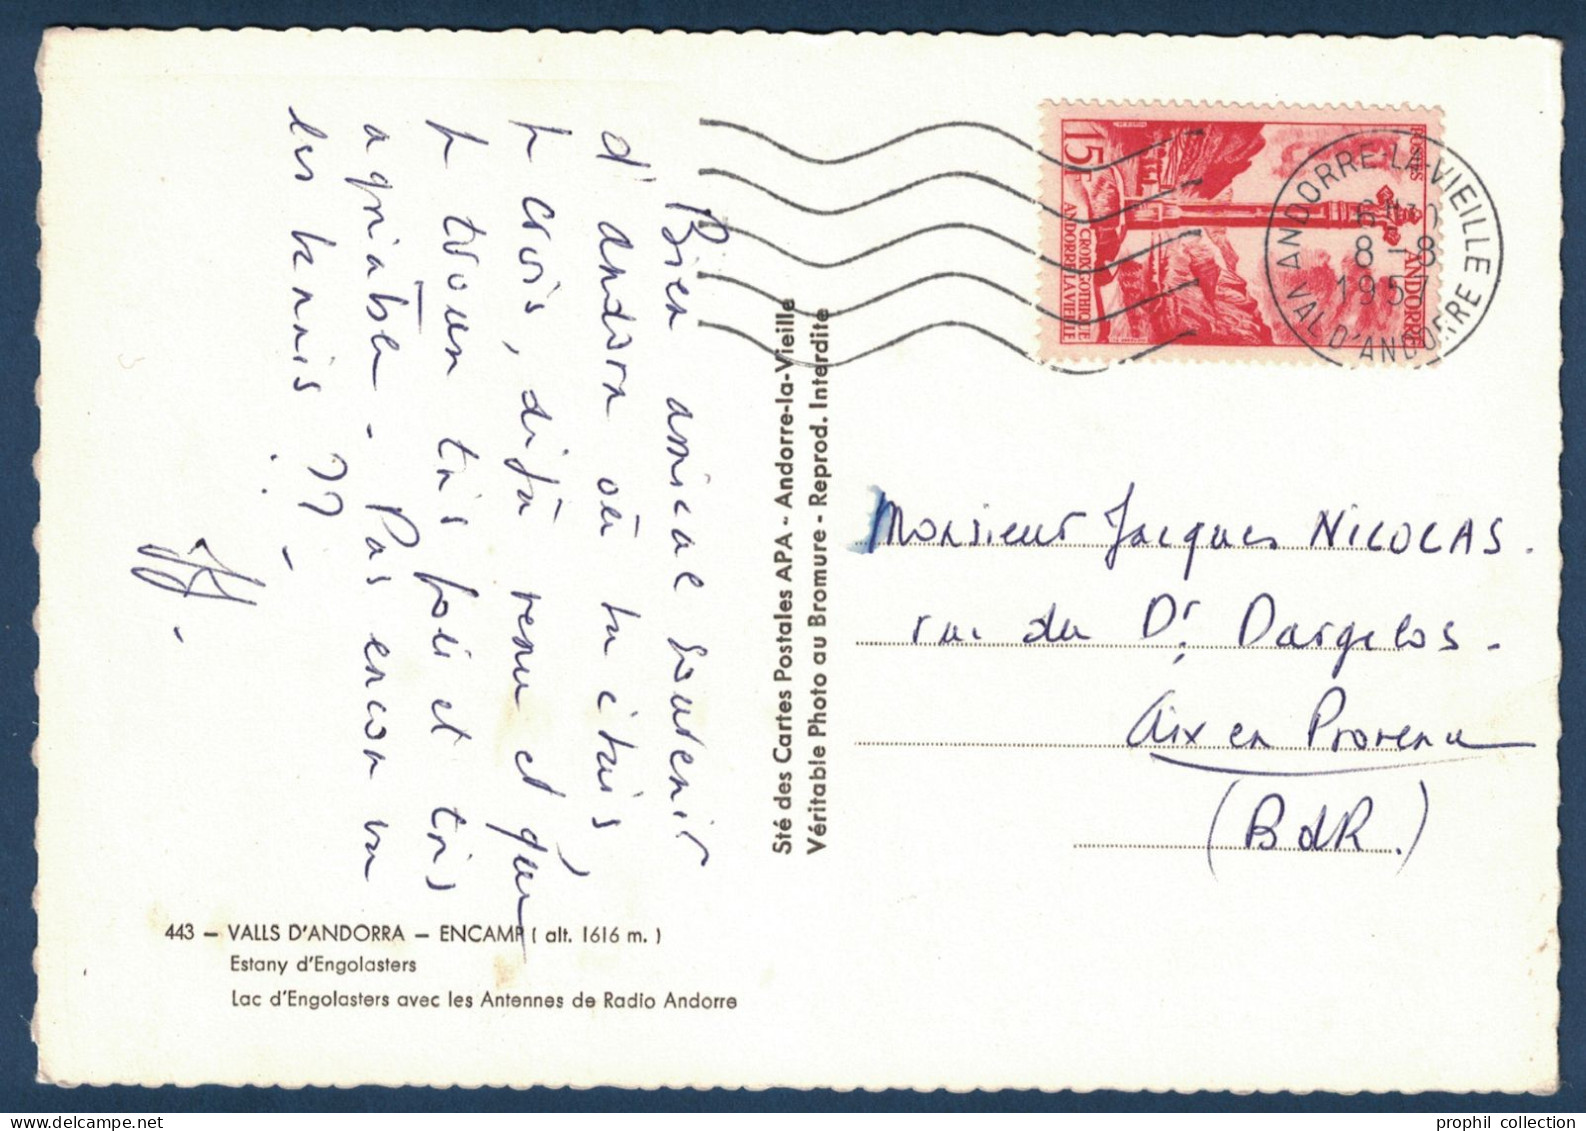 Bien amical souvenir
d'andorre où tu étais,
je crois, déjà venu et que
je trouve très joli et très
agréable - Pas encore vu
les
??
Sté des Cartes Postales APA - Andorre-la-Vieille
Véritable Photo au Bromure - Reprod. Interdite
15F
POSTES
CROIX GOTHIQUE
ANDORRE LA VIEILLE
ANDORRE
ANDORRE-LA-VIEILLE
8 -8
VAL D'ANDORRE
Monsieur Jacques NICOLAS.
rue du Dr. Dargelos -
Aix en Provence
(BdR.)
443 - VALLS D'ANDORRA - ENCAMP ( alt. 1616 m. )
Estany d'Engolasters
Lac d'Engolasters avec les Antennes de Radio Andorre
prophil collection